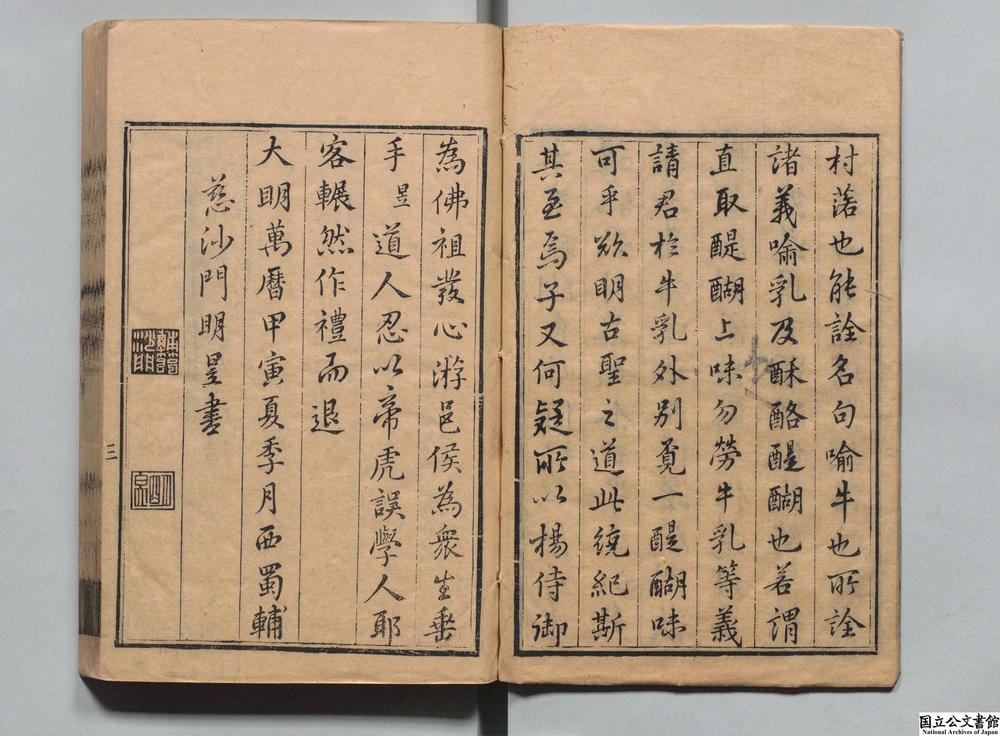 村落也能詮名句喻牛也所詮
諸義喻乳及酥酪醍醐也若謂
直取醍醐上味勿勞牛乳等義
請君於牛乳外別覔一醍醐味
可乎欲明古聖之道此綂紀斯
其至焉子又何疑所以楊侍御
為佛祖發心游邑侯為衆生垂
手昱道人忍以帝虎誤學人耶
客冁然作禮而退
大明萬曆甲寅夏季月西蜀輔
慈沙門明昱書
三
国立公文書館
National Archives of Japan